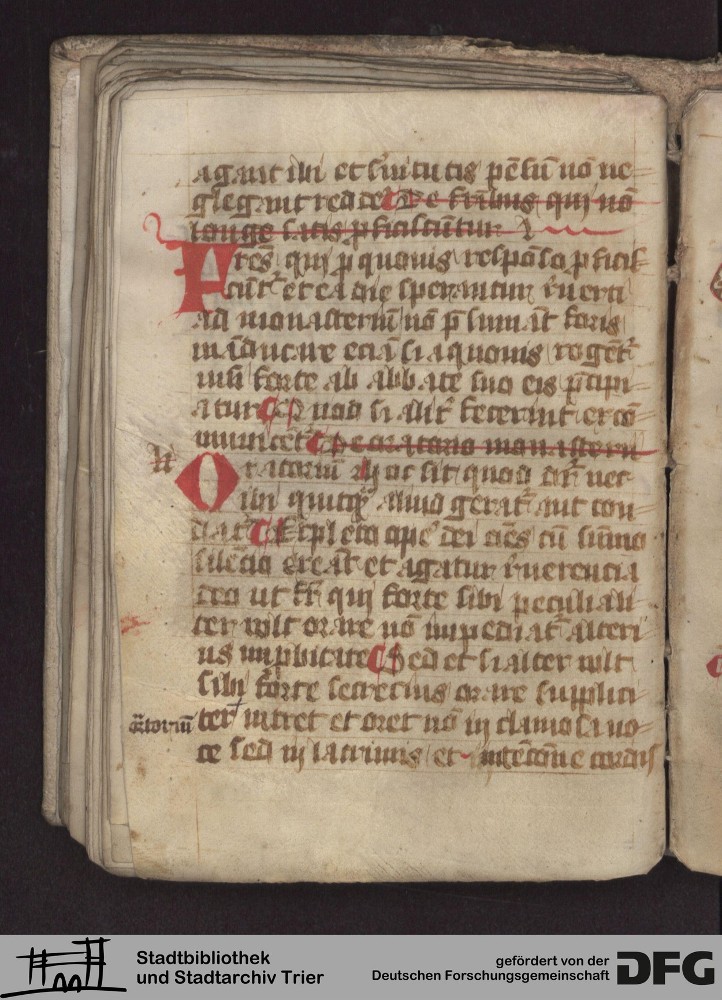 agant ibi et s̄uitutis pēsū nō ne=
glegant redde¶ De fr̄ibus qui nō
longe satis ꝓficiscūtur
Frēs qui ꝓ quouis respōso ꝓficis=
cūt᷑ et ea die sperantur r̄uerti
ad monasteriū nō p̄sumāt foris
māducare eciā si a quouis rogēt᷑
nisi forte ab abbate suo eis p̄cipi=
atur¶ Quod si alit᷑ fecerint excō=
municēt᷑¶ De oratorio monasterii
Oratoriū hoc sit quod dr̄ nec
ibi quicq̄ aliud gerat᷑ aut con=
dat᷑¶ Expleto ope dei oēs cū sūmo
silēcio exeāt et agatur r̄uerencia
deo ut fr̄ qui forte sibi peculiali=
ter wlt orare nō impediat᷑ alteri=
us imꝓbitate¶ Sed et si alter wlt
sibi forte secrecius orare simplici=
orātoriū ter intret et oret nō in clamosa uo=
ce sed in lacrimis et intēcōne cordis
Stadtbibliothek
und Stadtarchiv Trier
gefördert von der
Deutschen Forschungsgemeinschaft
DFG